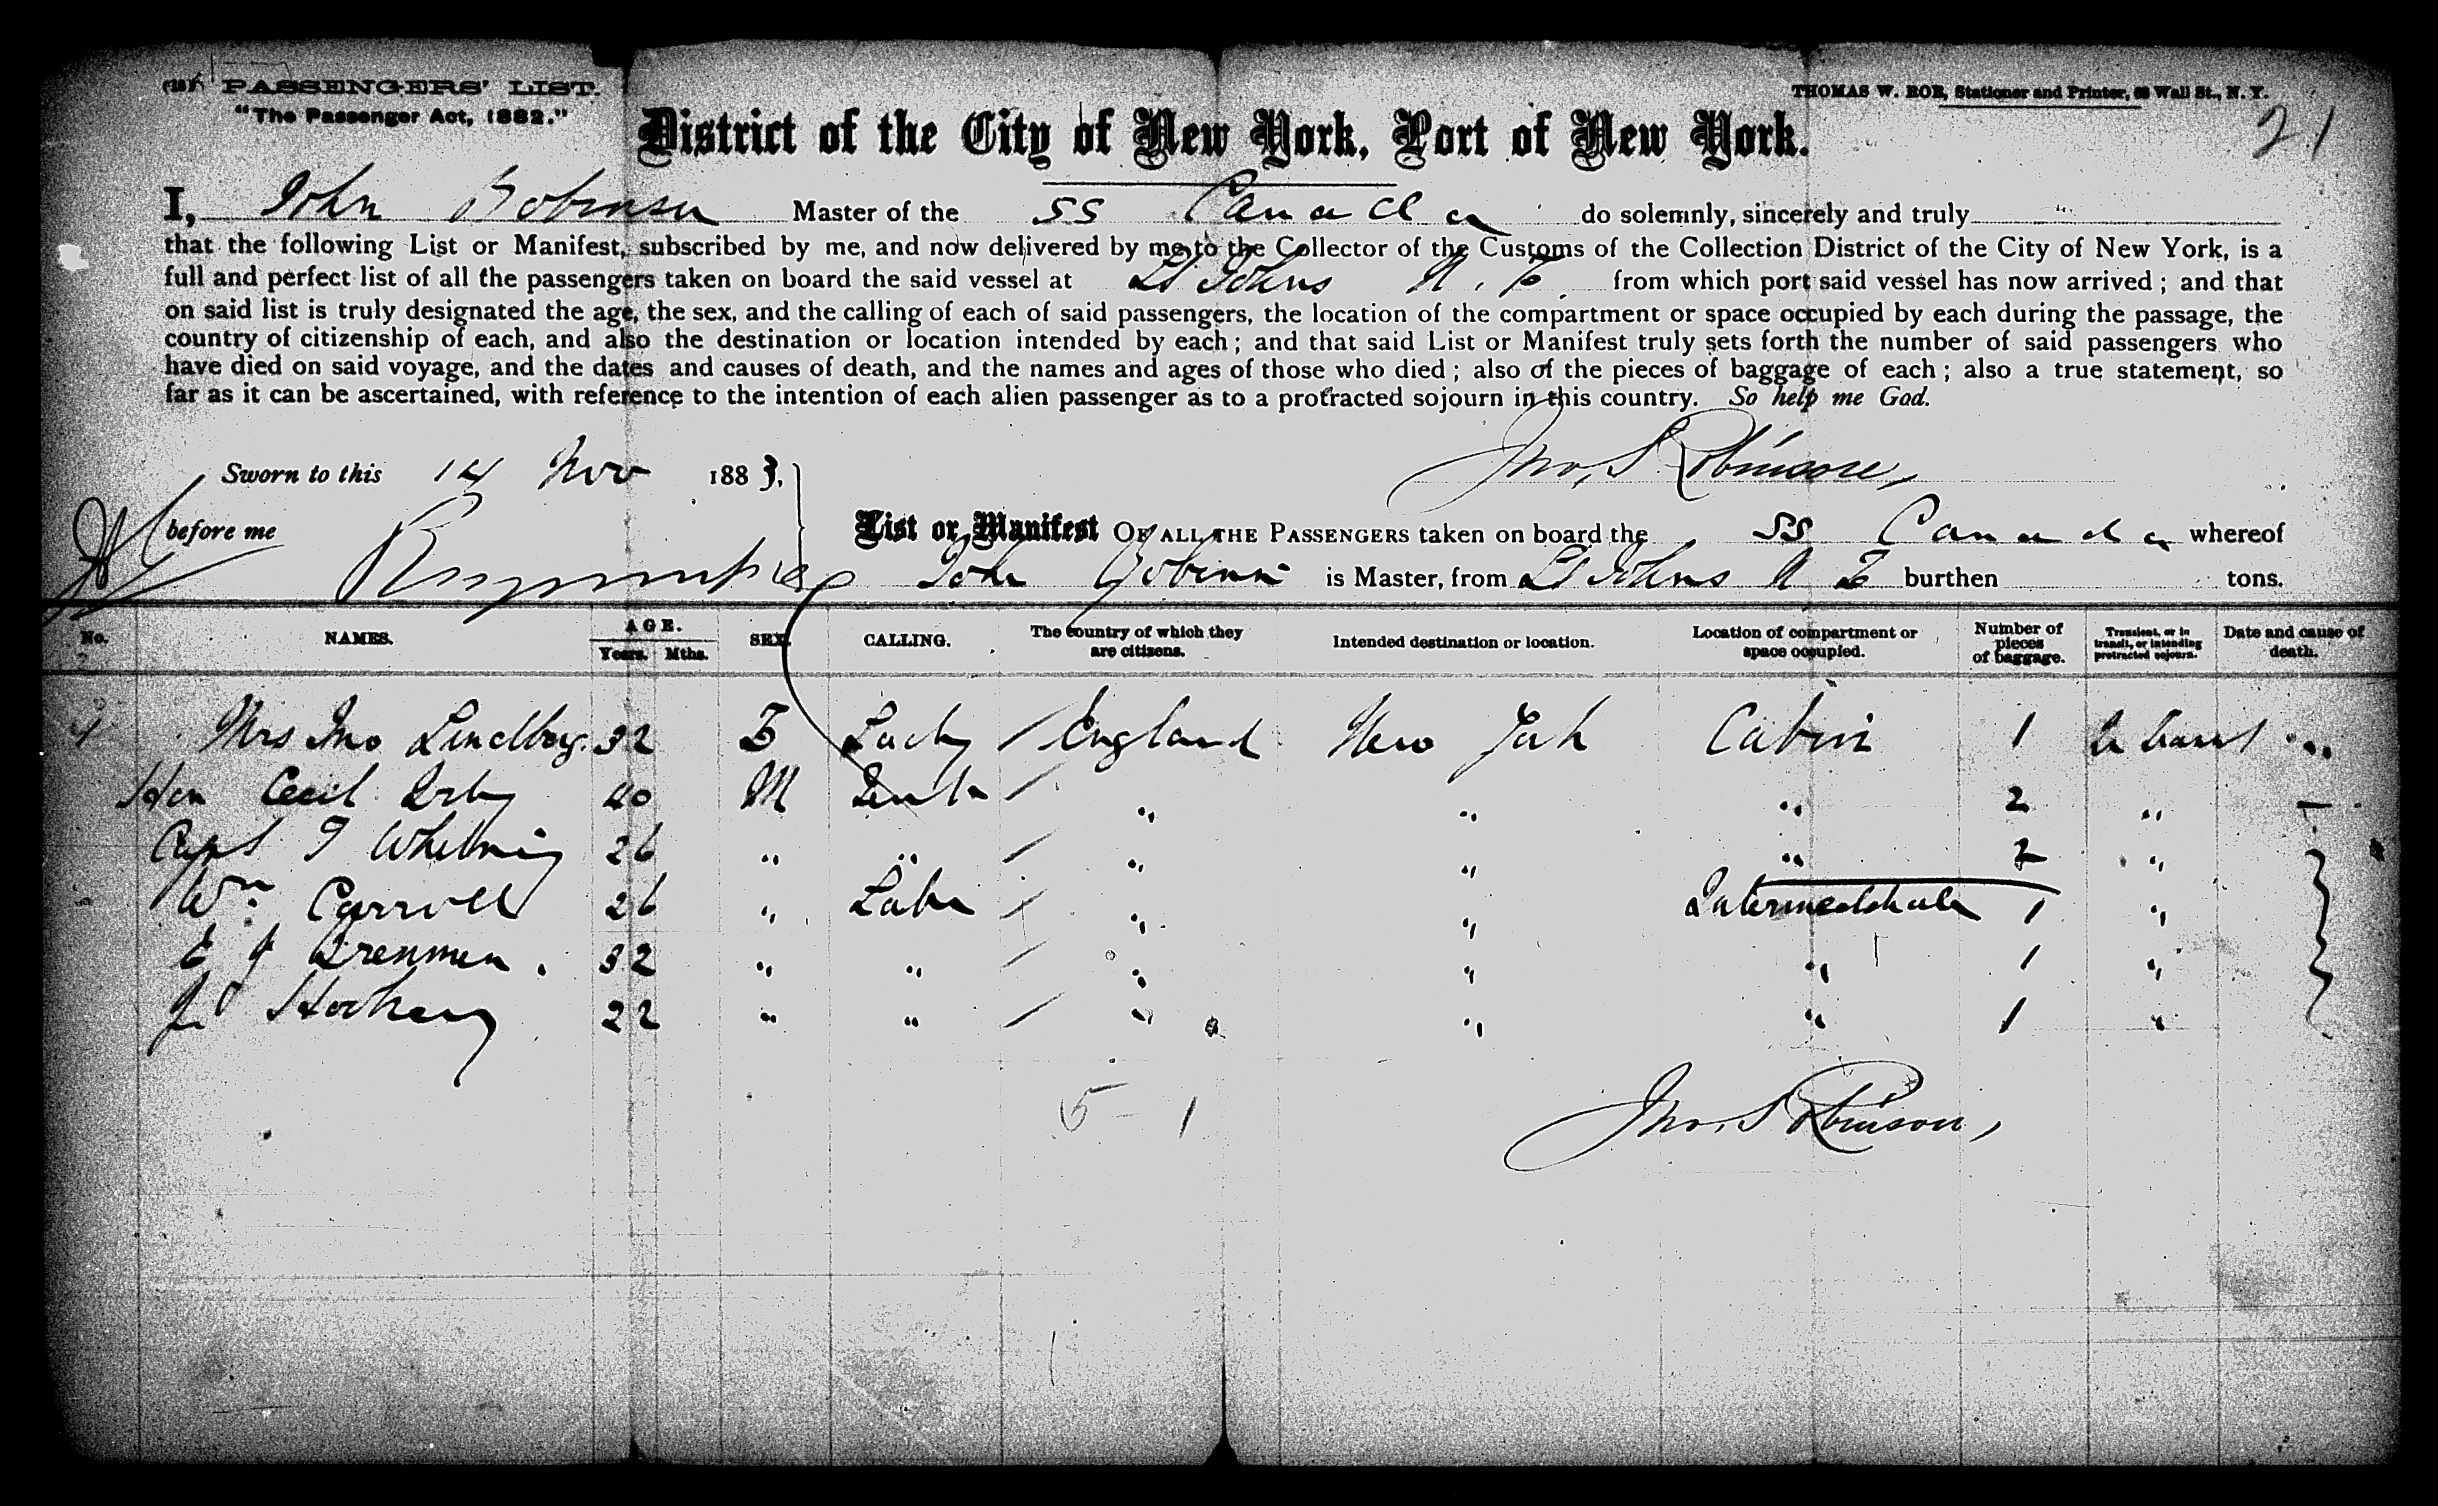 PASSENGERS' LIST.
"The Passenger Act, 1882."
THOMAS W. ROE, Stationer and Printer, Wall St., N. Y.
21
District of the City of New York, Port of New York.
I, John Robinson Master of the SS Canada do solemnly, sincerely and truly
that the following List or Manifest, subscribed by me, and now delivered by me to the Collector of the Customs of the Collection District of the City of New York, is a
full and perfect list of all the passengers taken on board the said vessel at St Johns N. F. from which port said vessel has now arrived; and that
on said list is truly designated the age, the sex, and the calling of each of said passengers, the location of the compartment or space occupied by each during the passage, the
country of citizenship of each, and also the destination or location intended by each; and that said List or Manifest truly sets forth the number of said passengers who
have died on said voyage, and the dates and causes of death, and the names and ages of those who died; also of the pieces of baggage of each; also a true statement, so
far as it can be ascertained, with reference to the intention of each alien passenger as to a protracted sojourn in this country. So help me God.
Jno. S Robinson,
Sworn to this 14 Nov 1883,
before me
List or Manifest OF ALL THE PASSENGERS taken on board the SS Canada whereof
John Robinson is Master, from St Johns N F burthen tons.
No. NAMES. AGE. Years. Mths. SEX. CALLING. The country of which they are citizens. Intended destination or location. Location of compartment or space occupied. Number of pieces of baggage. Transient, or in transit, or intending protracted sojourn. Date and cause of death.
Mrs Jno Lindberg 32 F Lady / England New York Cabin 1
Hon Cecil Irby 40 M / " " " 2 " —
Capt T 26 " " / " " " 2 "
Wm Carroll 26 " Labr / " " Intermediate 1 "
E J Brennen. 32 " " / " " " 1 "
Jno Hockey 22 " " / " " " 1 "
5 - 1
Jno. S Robinson,